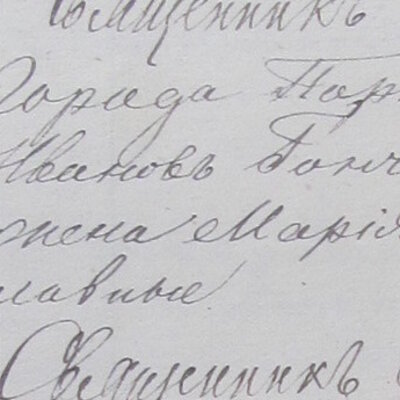 Священникъ
Города Пор
Ивановъ Гонч
жена Марія
лавные
Священникъ